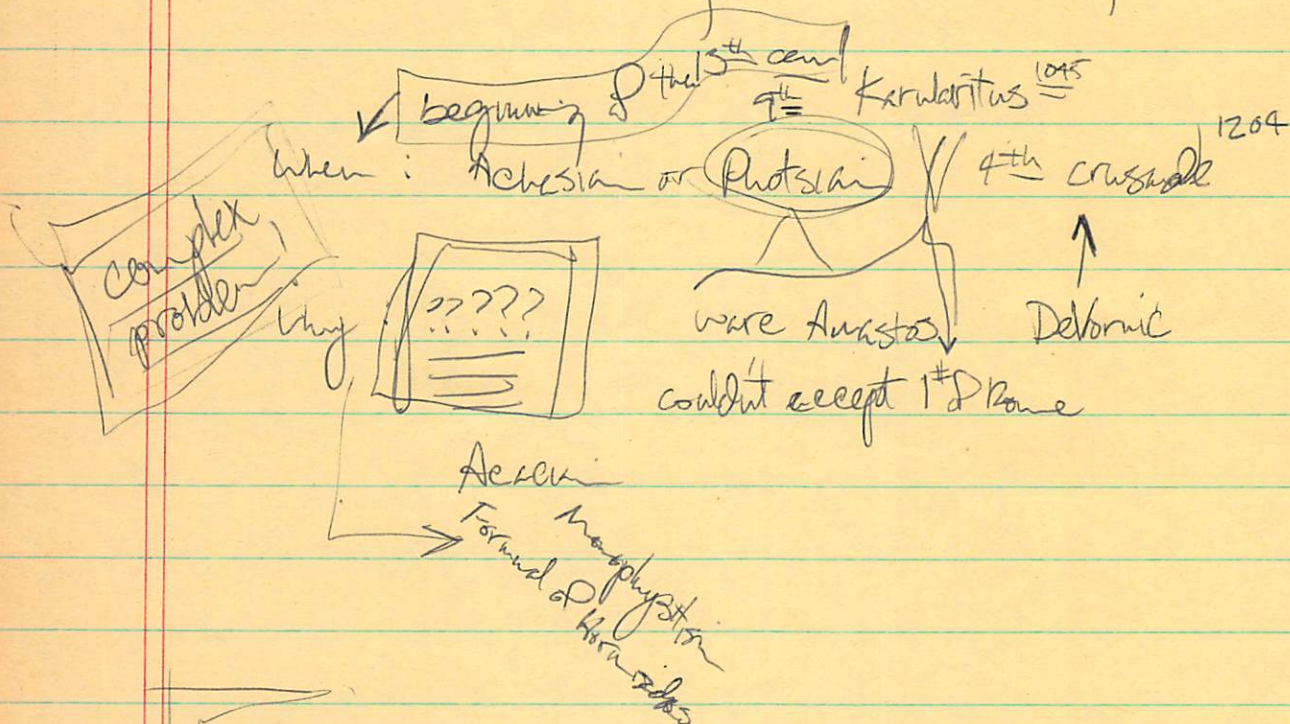 beginning of the 13th cent
9th
Karularitus 1045
1204
When : Achasian or Photsian 4th crusade
complex
problem!
Why ?????
ware Anastos DeVornic
couldn't accept 1st of Rome
Acacian
Monophystism
Formul of Hormisdas